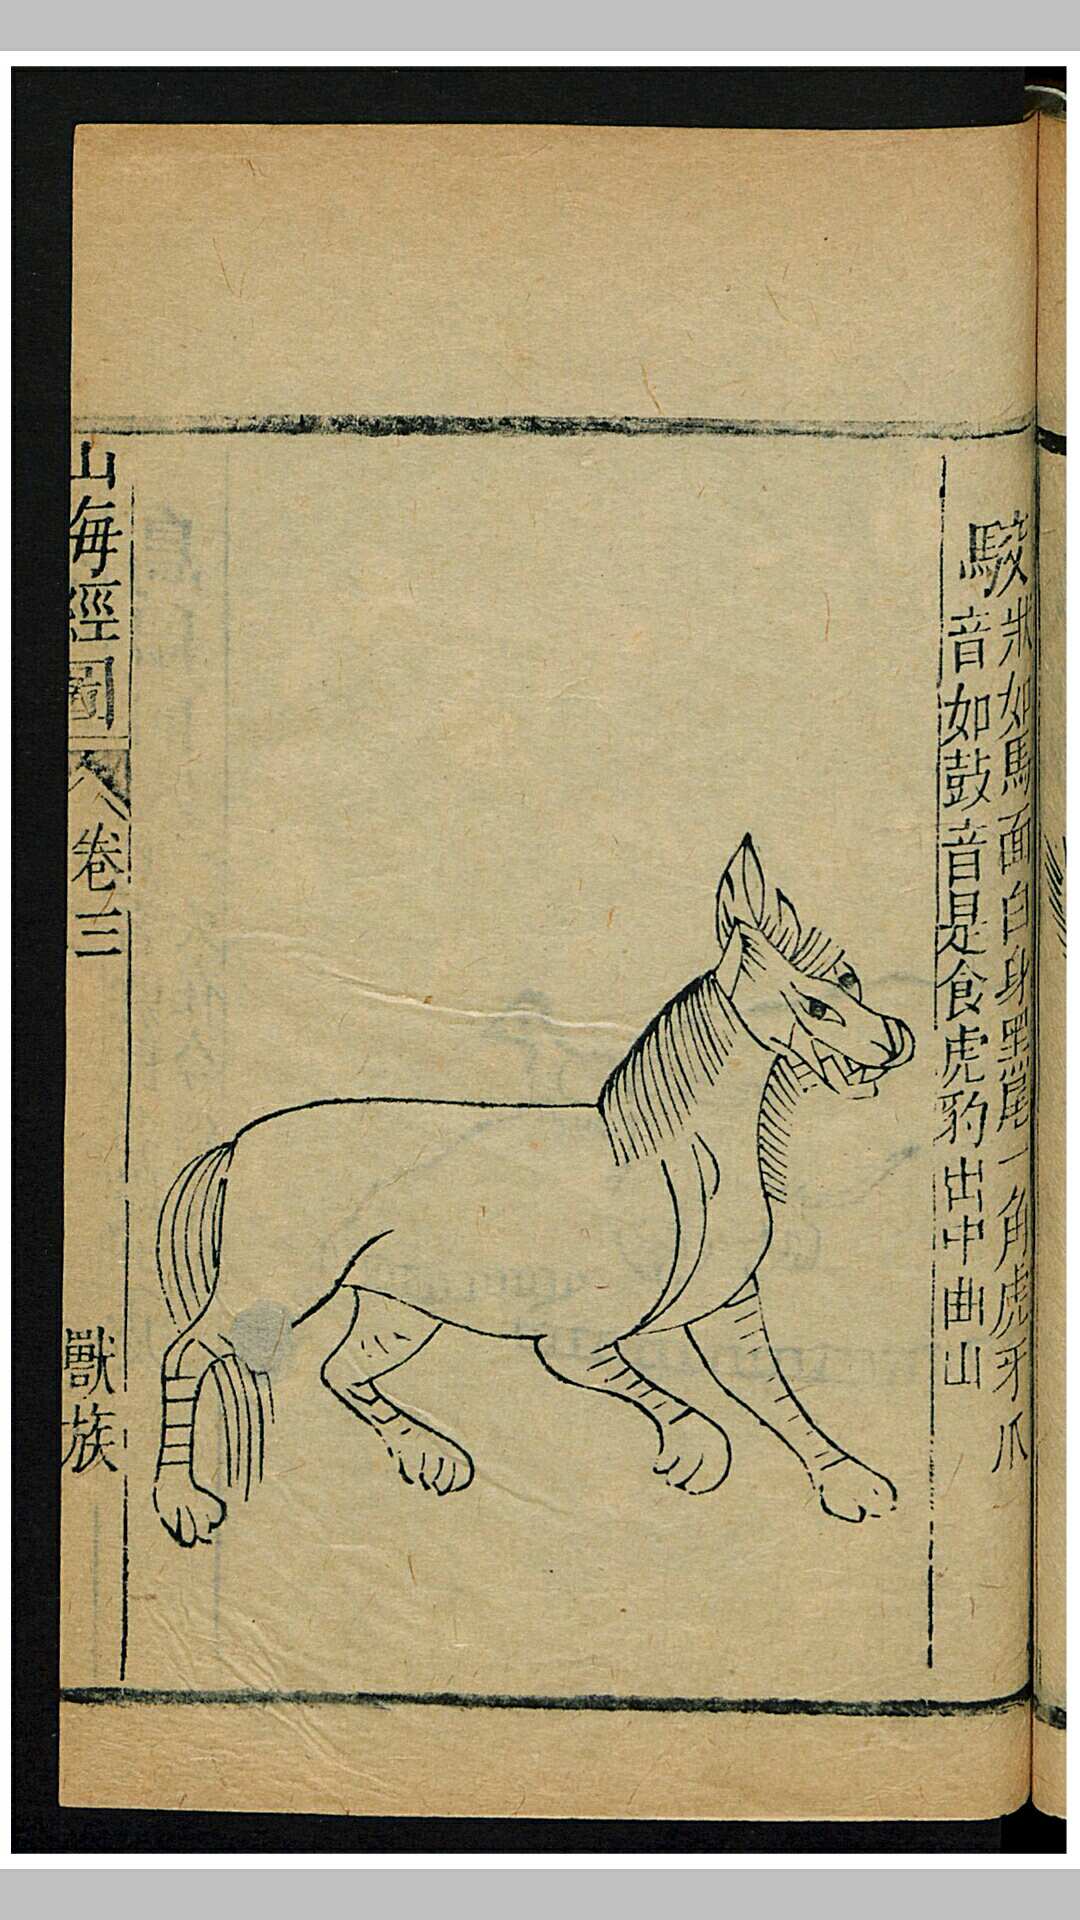 駮
狀如馬面白身黑尾一角虎牙爪
音如鼓音是食虎豹出中曲山
山海經圖
卷三
獸族